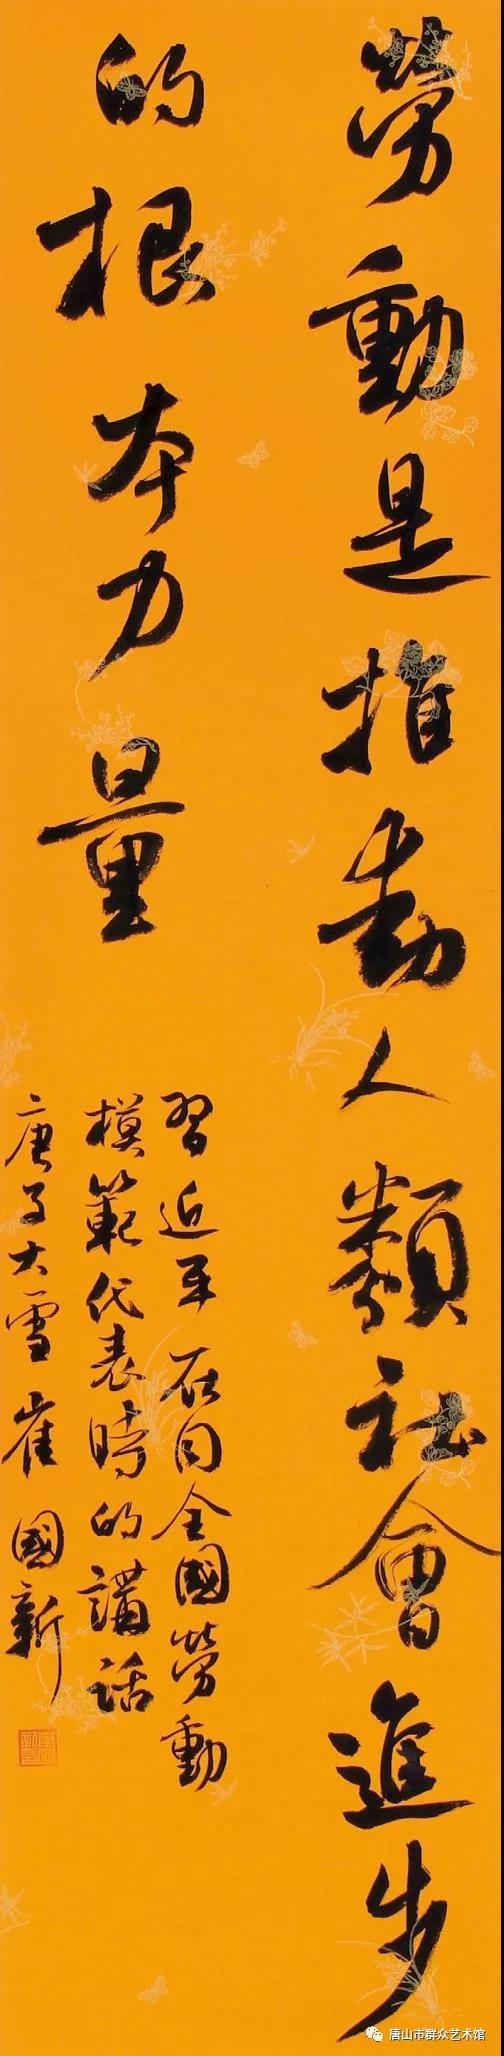 勞動是推動人類社會進步
的根本力量
習近平在同全國勞動
模範代表時的講話
庚子大雪崔國新
唐山市群众艺术馆